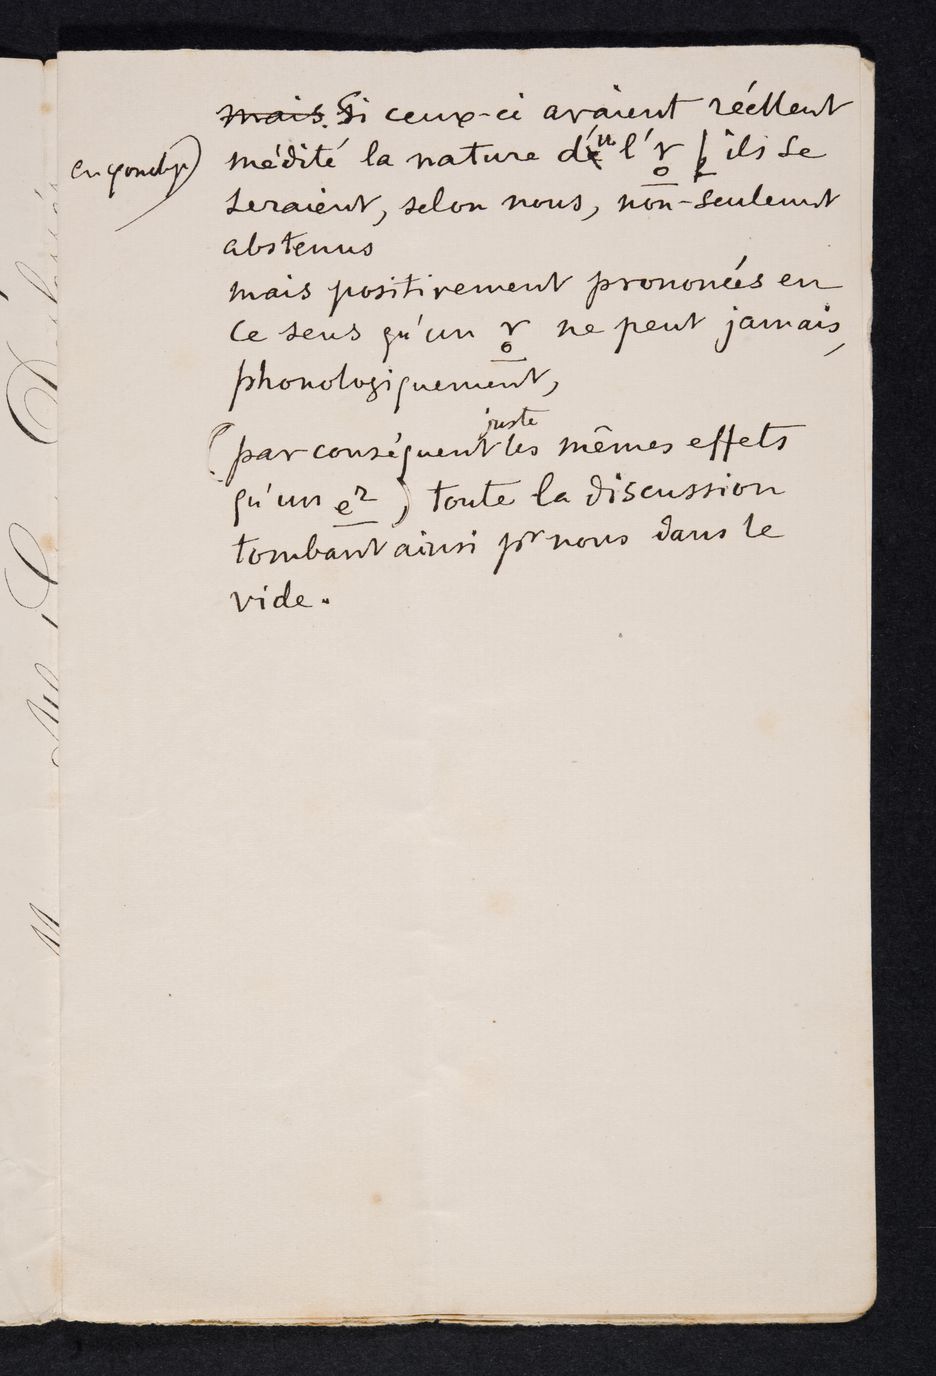 mais Si ceux-ci avaient réellent
médité la nature de l' r̥ ils se
seraient, selon nous, non-seulemt
abstenus
mais positivement prononcés en
ce sens qu'un r̥ ne peut jamais,
phonologiquement,
juste
(par conséquent les mêmes effets
qu'un er) toute la discussion
tombant ainsi pr nous dans le
vide.